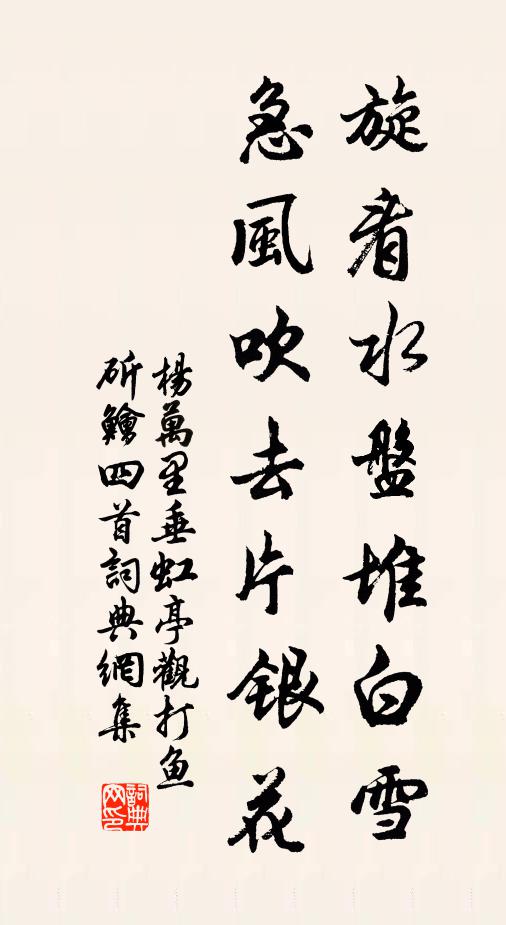 旋看水盤堆白雪
急風吹去片銀花
楊萬里垂虹亭觀打魚
斫鱠四首詞典網集
詞典
网印